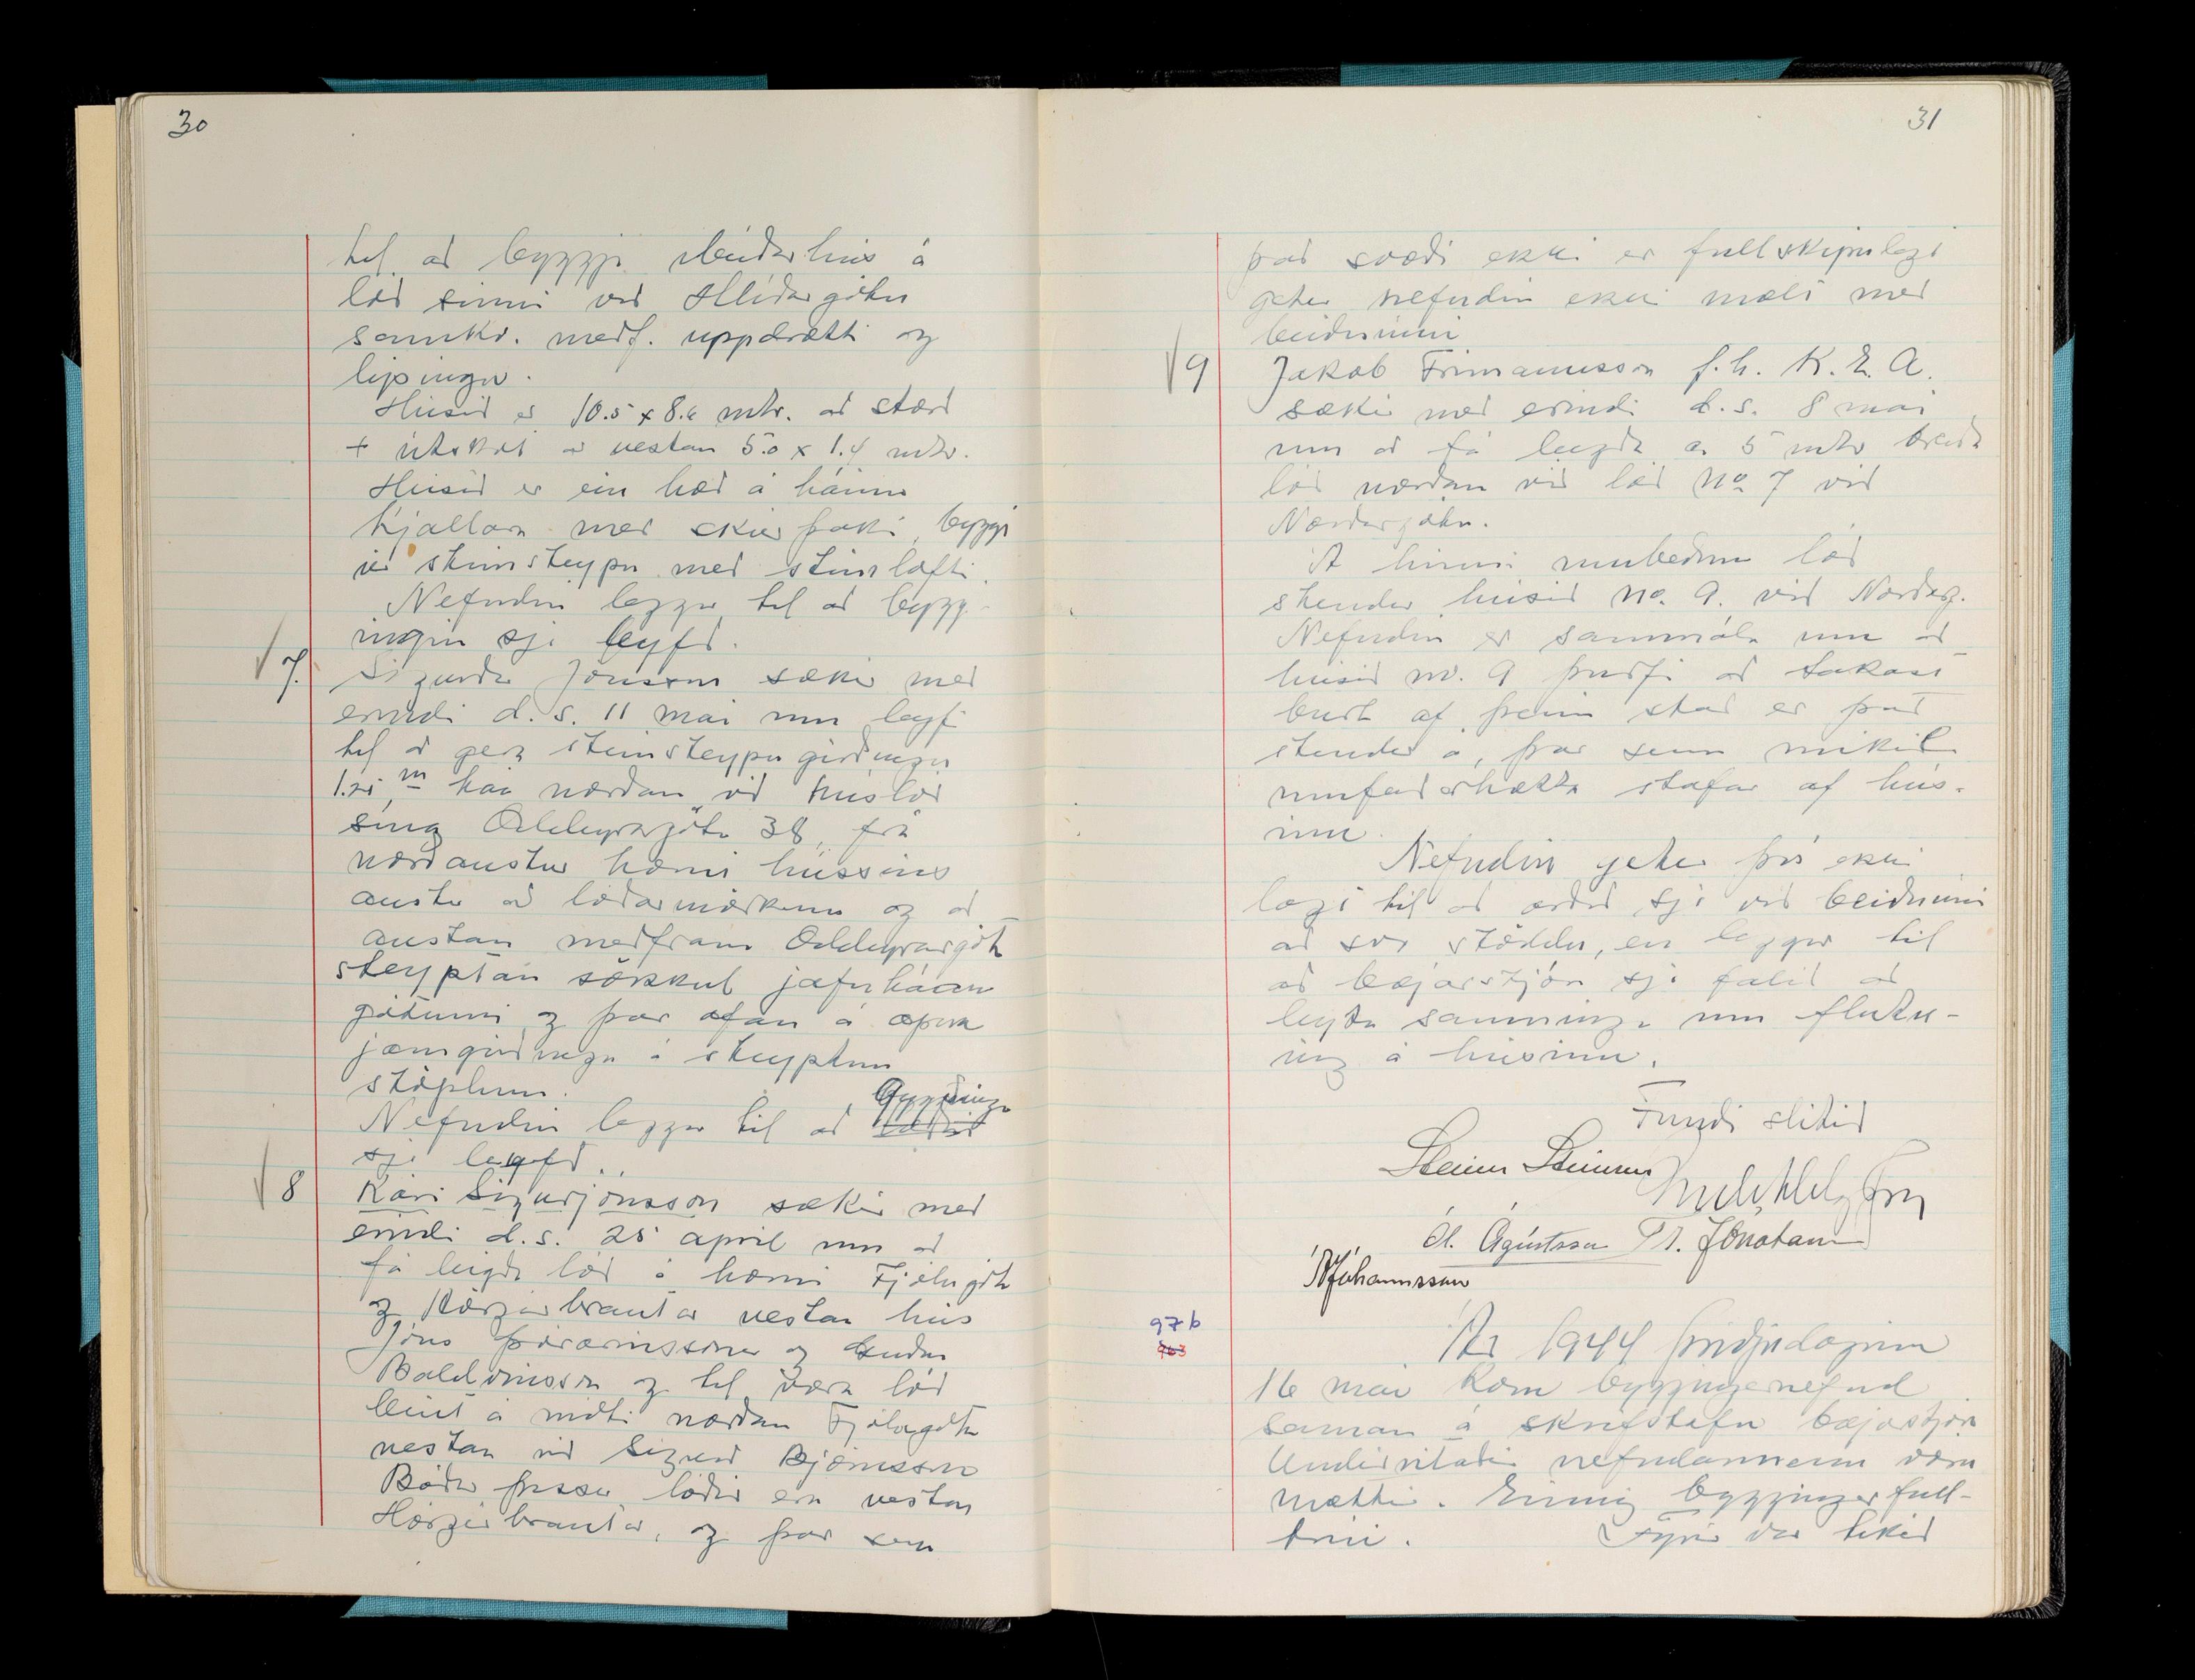 30
til að byggja íbúðarhús á
lóð sinni við Hlíðargötu
samkv. meðf. uppdrætti og
lýsingu.
Húsið er 10.5 x 8.4 mtr. að stærð
+ útskot að vestan 5.0 x 1.4 mtr.
Húsið er ein hæð á háum
kjallara með skúrþaki, byggt
úr steinsteypu með steinlofti.
Nefndin leggur til að bygg-
ingin sje leyfð.
7. Sigurður Jónsson sækir með
erindi d.s. 11 maí um leyfi
til að gera steinsteypugirðingu
m háa norðan við húslóð
sína Oddeyrargötu 38, frá
norðaustur horni hússins
austur að lóðarmörkum og að
austan meðfram Oddeyrargötu
steyptan sökkul jafnháan
götunni og þar ofan á opna
járngirðingu á steyptum
stöplum.
Nefndin leggur til að girðinga
sje leyfð.
8 Kári Sigurjónsson sækir með
erindi d.s. 25 apríl um að
fá leigða lóð á horni Fjólugötu
og Hörgárbrautar vestan hús
Jóns Þórarinssonar og
Baldvinsson og til vara lóð
beint á móti norðan Fjólugötu
vestan við Sigurð Björnsson
Báðar þessar lóðir eru vestan
Hörgárbrautar, og þar sem
31
það svæði ekki er fullskipulagt
getur nefndin ekki mælt með
beiðninni
9 Jakob Frímannsson f.h. K.E.A.
sækir með erindi d.s. 8 maí
um að fá leigða ca. 5 mtr breiða
lóð norðan við lóð No 7 við
Norðurgötu.
Á hinni umbeðnu lóð
stendur húsið no. 9. við Norðurg.
Nefndin er sammála um að
húsið no. 9 þurfi að takast
burt af þeim stað er það
stendur á, þar sem mikil
umferðarhætta stafar af hús-
inu.
Nefndin getur því ekki
lagt til að orðið sje við beiðninni
að svo stöddu, en leggur til
að bæjarstjórn sje falið að
leyta samninga um flutn-
ing á húsinu.
Fundi slitið
Steinn Steinsen
Ól. Ágústsson Tr. Jónatansson
Jóhannsson
97b
963
Ár 1944 þriðjudaginn
16 maí kom bygginganefnd
saman á skrifstofu bæjarstjóra
Undirritaðir nefndarmenn voru
mættir. Einnig byggingarfull-
trúi. Fyrir var tekið